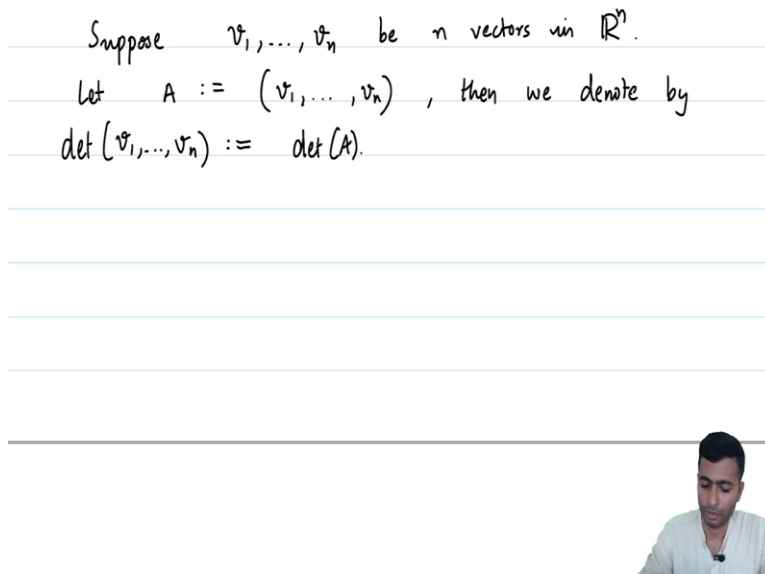 Suppose v₁,...,vₙ be n vectors in ℝⁿ.
Let A := (v₁,...,vₙ), then we denote by
det(v₁,...,vₙ) := det(A).